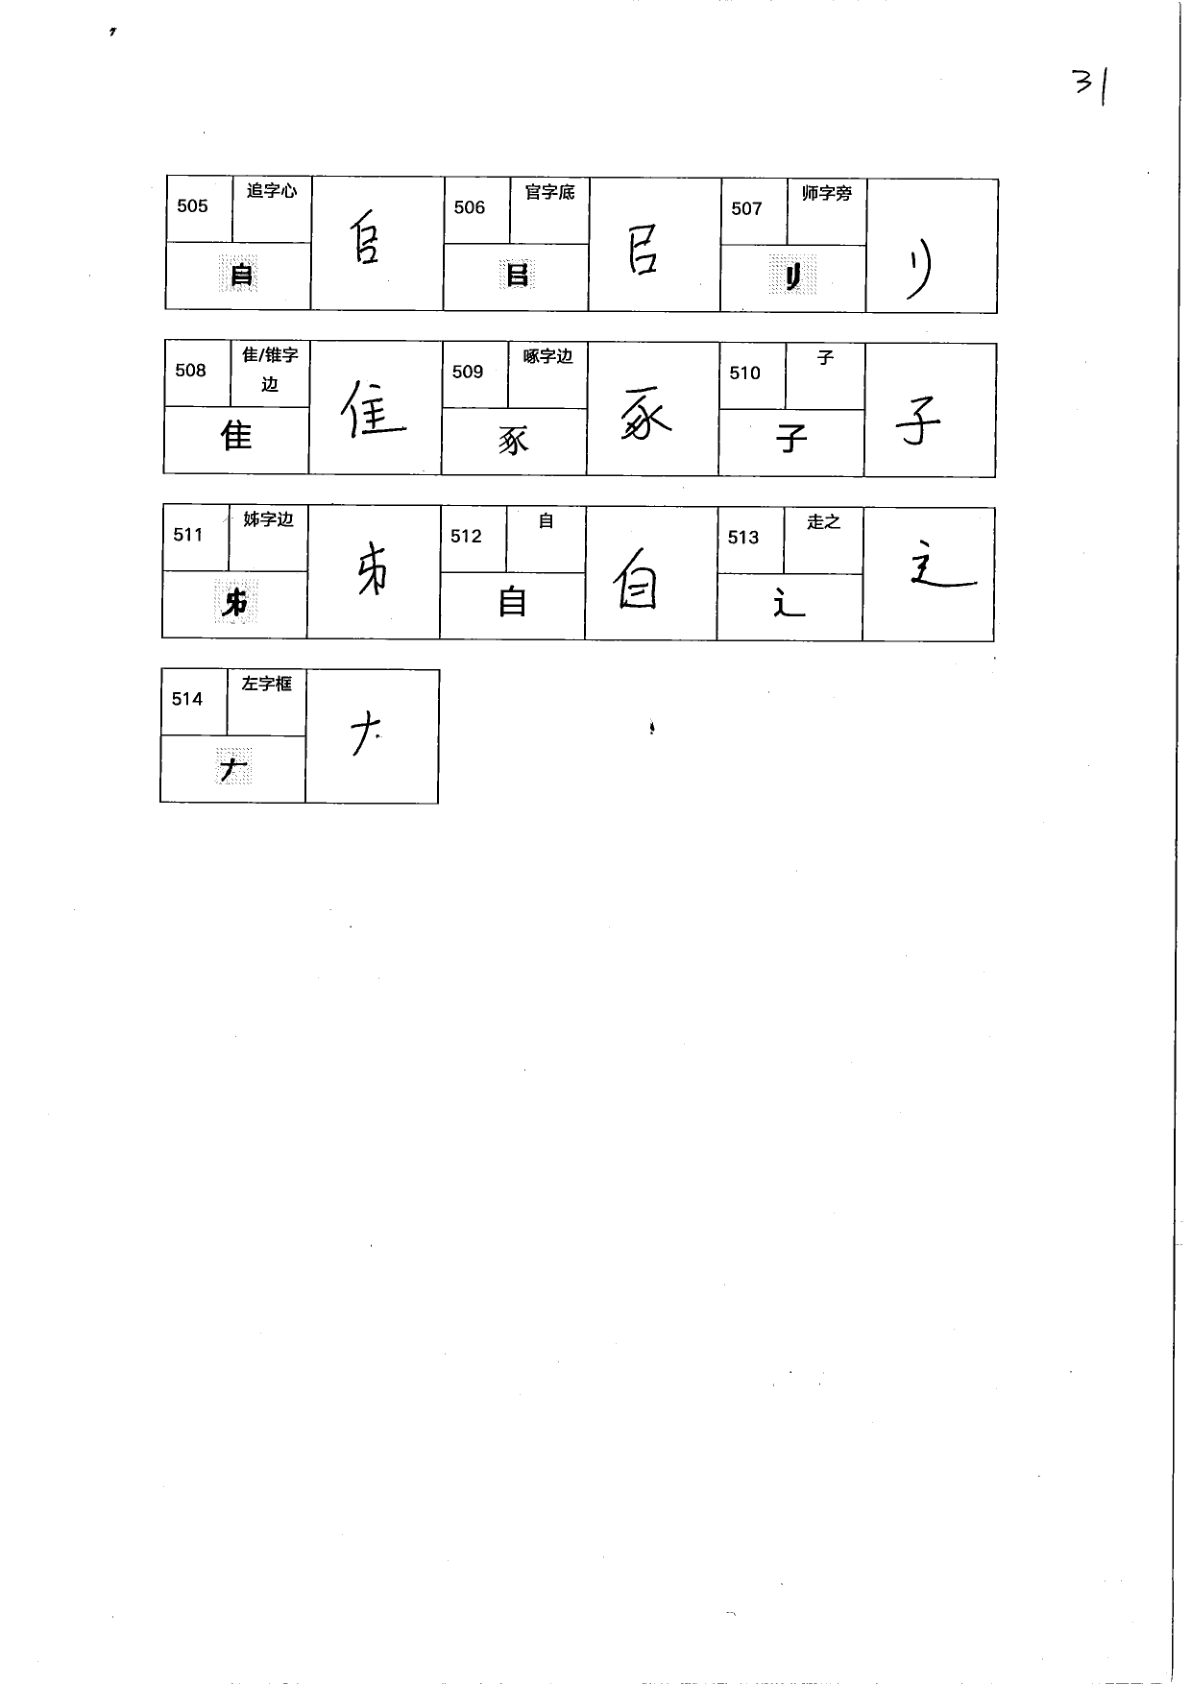 31
505 追字心 𠂤 𠂤
506 官字底 㠯 㠯
507 师字旁 刂 刂
508 隹/锥字边 隹 隹
509 啄字边 豖 豖
510 子 子 子
511 姊字边 𠂔 𠂔
512 自 自 自
513 走之 辶 辶
514 左字框 𠂇 𠂇